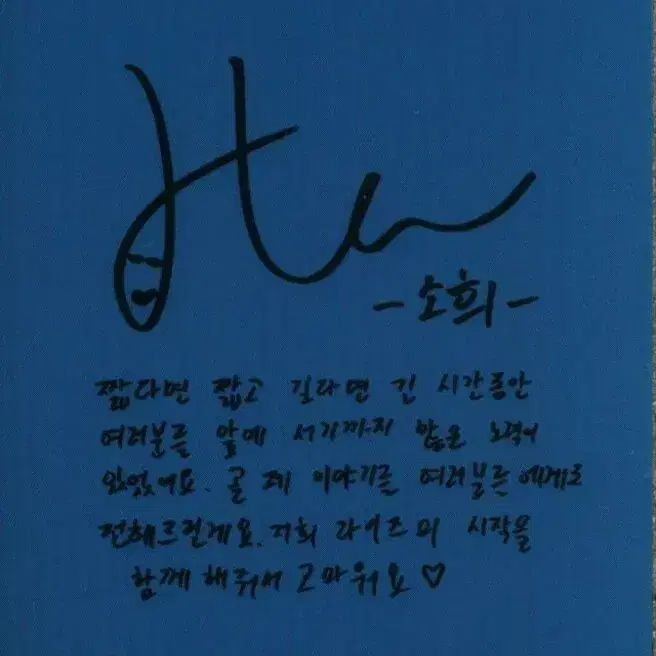 -소희-
짧다면 짧고 길다면 긴 시간동안
여러분들 앞에 서기까지 많은 노력이
있었어요. 곧 제 이야기를 여러분들에게로
전해드릴게요. 저희 라이즈의 시작을
함께 해줘서 고마워요 ♡